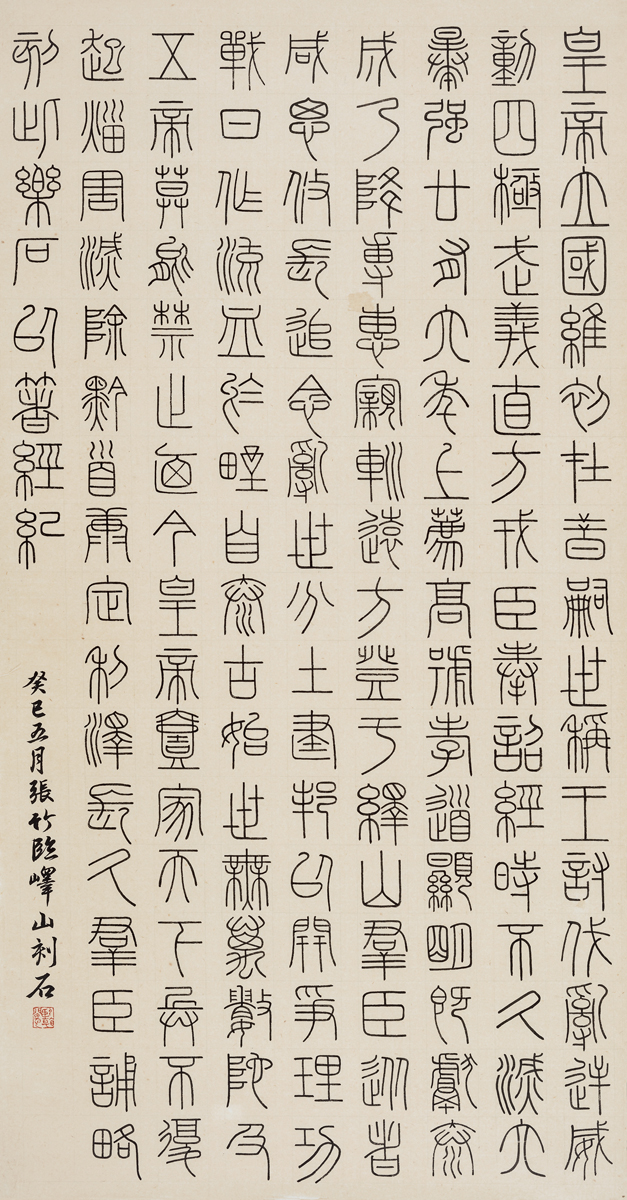 皇帝立國維初在昔嗣世稱王討伐亂逆威
動四極武義直方戎臣奉詔經時不久滅六
暴强廿有六年上薦高號孝道顯明既獻泰
成乃降專惠寴軔遠方登于繹山羣臣從者
咸思攸長追念亂世分土建邦以開爭理功
戰日作流血於野自泰古始世無萬數陀及
五帝莫能禁止迺今皇帝壹家天下兵不復
起災害滅除黔首康定利澤長久羣臣誦略
刻此樂石以著經紀
癸巳五月張竹臨嶧山刻石